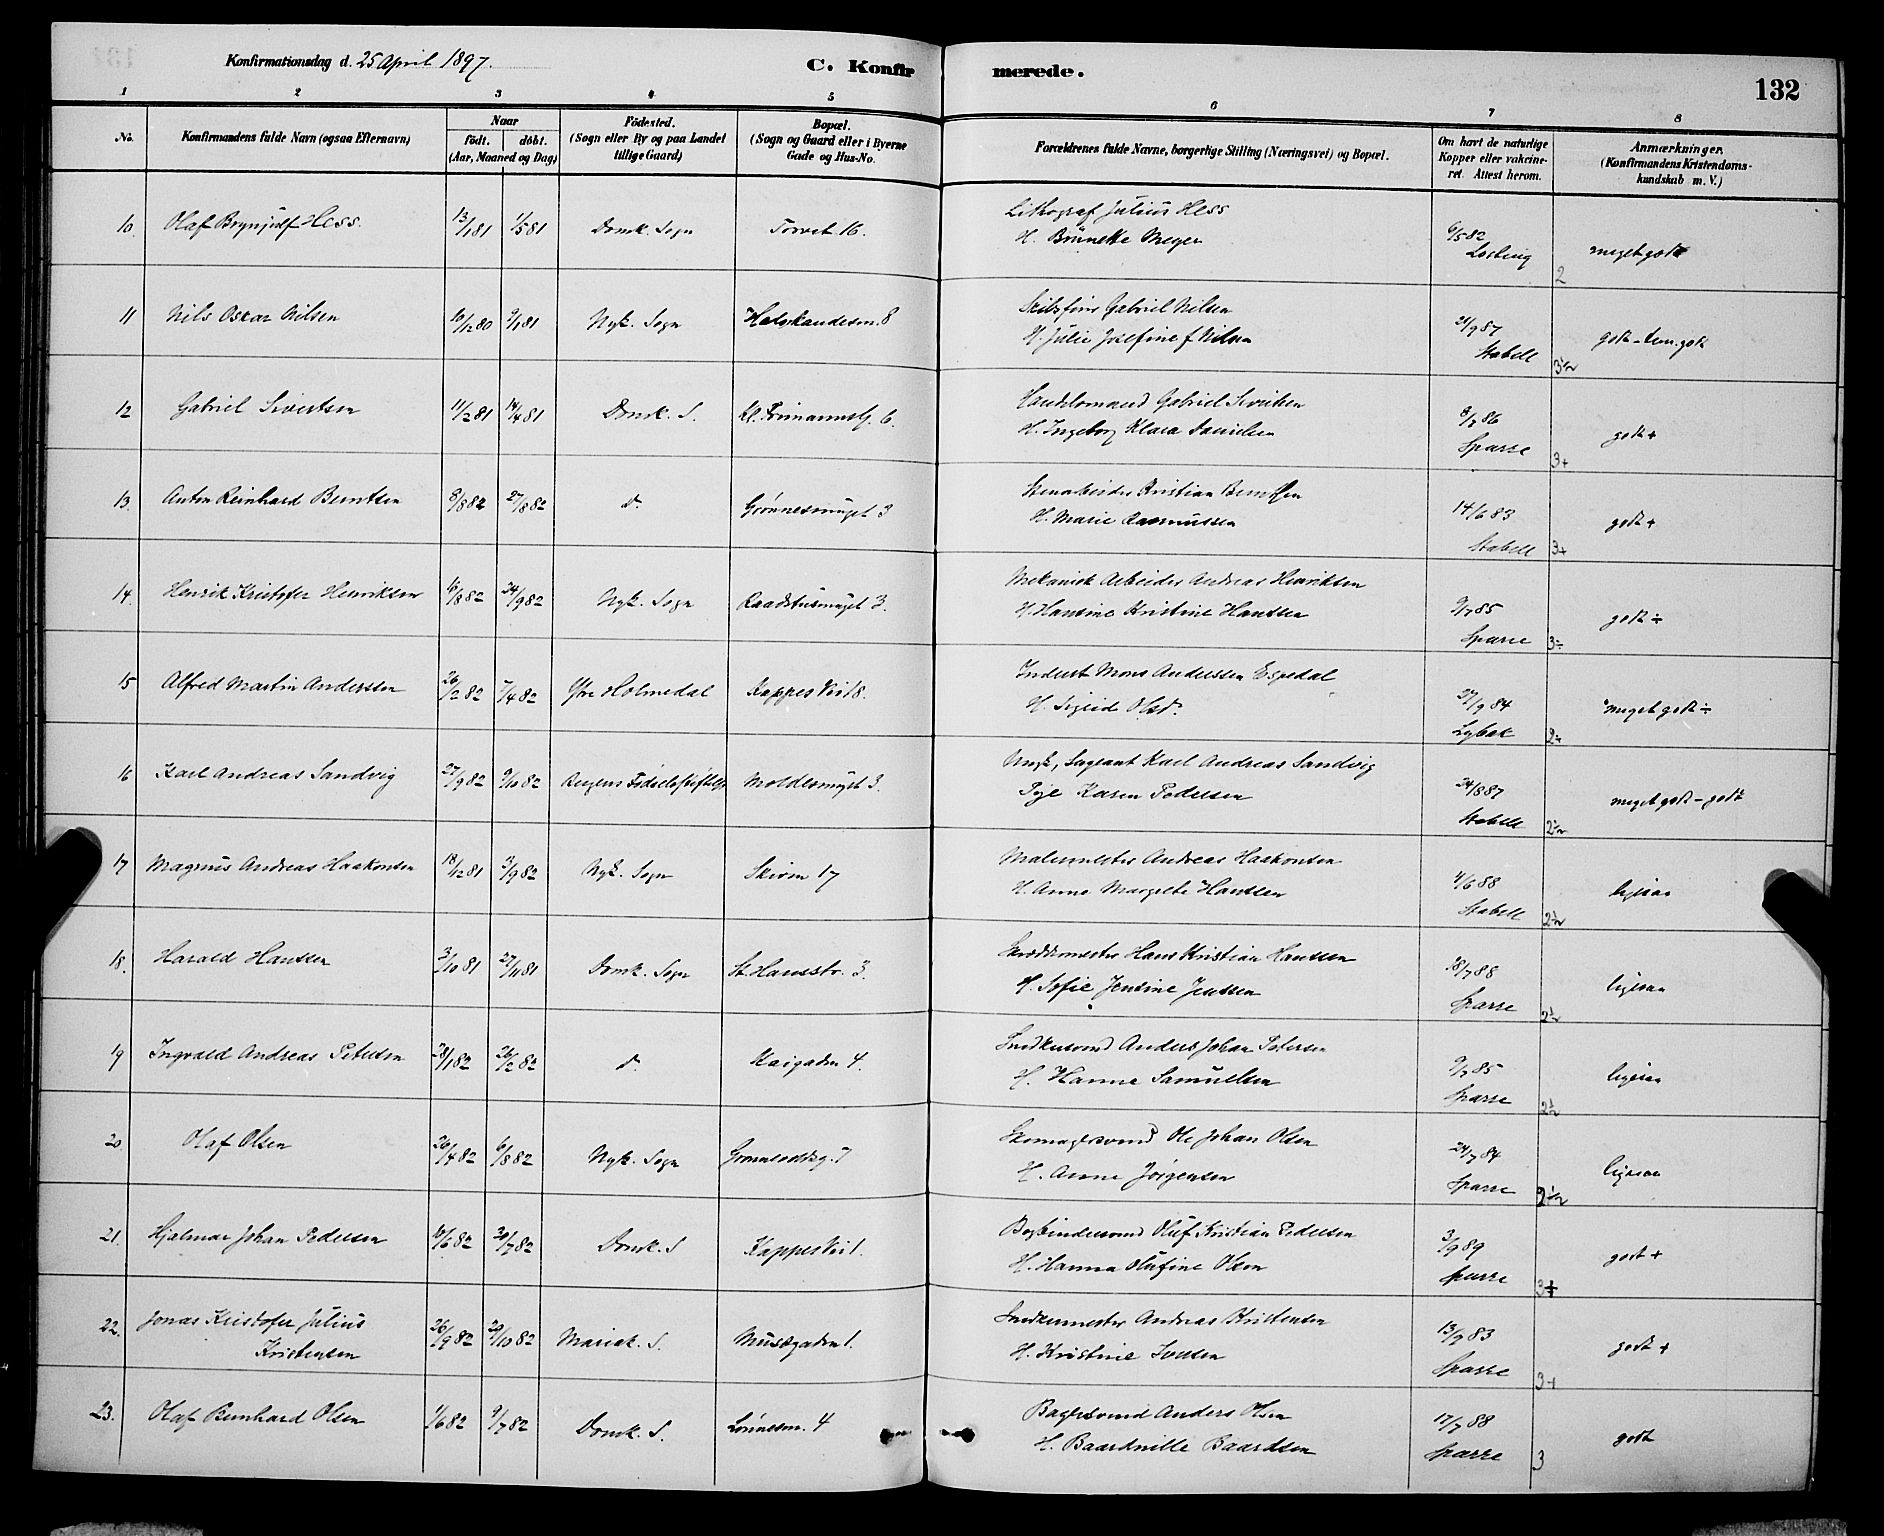 Konfirmationsdag d. 25 April 1897.
C. Konfirmerede.
132
1 2 3 4 5 6 7 8
No.
Konfirmandens fulde Navn (ogsaa Efternavn)
Naar
födt. döbt.
(Aar, Maaned og Dag)
Födested.
(Sogn eller By og paa Landet
tillige Gaard)
Bopæl.
(Sogn og Gaard eller i Byerne
Gade og Hus-No.
Forældrenes fulde Navne, borgerlige Stilling (Næringsvei) og Bopæl.
Om havt de naturlige
Kopper eller vakcine-
ret. Attest herom.
Anmærkninger.
(Konfirmandens Kristendoms-
kundskab m. V.)
10. Olaf Brynjulf Hess. 13/1 81 1/5 81 Domk. Sogn Torvet 16. Lithograf Julius Hess 6/5 82
H. Brünette Meyer meget godt 2
11 Nils Oskar Nilsen 10/12 80 9/1 81 Nyk. Sogn Gabriel Nilsen 21/9 87
H. Julie Josefine f Nilsen Stabell godt - tem. godt 3½
12 Gabriel Sivertsen 11/2 81 14/4 81 Domk. S. 6. Handelsmand Gabriel Sivertsen 8/7 86
H. Ingeborg Klara Danielsen Sparre 3+ godt +
13. Anton Reinhard Berntsen 8/8 82 27/8 82 d. Grønnesmuget 3 Stenarbeider Kristian Berntsen 14/6 83
H. Marie Rasmussen Stabell 3+ godt +
14. Henrik Kristofer Henriksen 16/8 82 24/9 82 Nyk. Sogn Raadstusmuget 3. Mekanisk Arbeider Andreas Henriksen 9/7 85
H. Hansine Kristine Hanssen Sparre 3÷ godt ÷
15 Alfred Martin Anderssen 26/2 82 7/4 82 Ytre Holmedal Kappes Vei 18. Inderst Mons Anderssen Espedal 27/9 84
H. Sigrid Olsd. meget godt ÷
16 Karl Andreas Sandvig 27/9 82 9/10 82 Bergens Fødselsstiftelse Moldesmuget 3. Ungk, Sergeant Karl Andreas Sandvig 24/8 87
Pige Karen Pedersen Stabell 2½ meget godt - godt
17 Magnus Andreas Haakonsen 18/12 81 3/9 82 Nyk. Sogn Skiven 17 Malermester Andreas Haakonsen 4/6 88
H. Anne Margrete Hanssen Stabell 2½ ligesaa
18. Harald Hanssen 3/10 81 27/11 81 Domk. Sogn St. Hansstr. 3. Skræddermester Hans Kristian Hanssen 18/7 88
H. Sofie Jensine Jenssen Sparre 2½ ligesaa
19 Ingvald Andreas Petersen 28/1 82 26/2 82 d. Kaigaden 4. Snedkersvend Anders Johan Petersen 9/7 85
H. Hanne Samuelsen Sparre 2½ ligesaa
20. Olaf Olsen 26/4 82 6/8 82 Nyk. Sogn 7 Skomagersvend Ole Johan Olsen 24/7 84
H. Anne Jörgensen Sparre 2½ ligesaa
21. Hjalmar Johan Pedersen 10/6 82 30/7 82 Domk. S Kappes Vei 1. Bogbindersvend Oluf Kristian Pedersen 3/9 89
H. Hanna Olufine Olsen Sparre 3+ godt +
22. Jonas Kristofer Julius 26/9 82 29/10 82 Mariak. S. Musægaden 1. Snedkermester Andreas Kristensen 13/9 83
Kristensen H. Kristine Iversen Sparre 3+ godt +
23. Olaf Bernhard Olsen 1/6 82 9/7 82 Domk. S. Lönnesm. 4 Bagersvend Anders Olsen 17/7 88
H. Baardnille Baardsen Sparre 3 godt